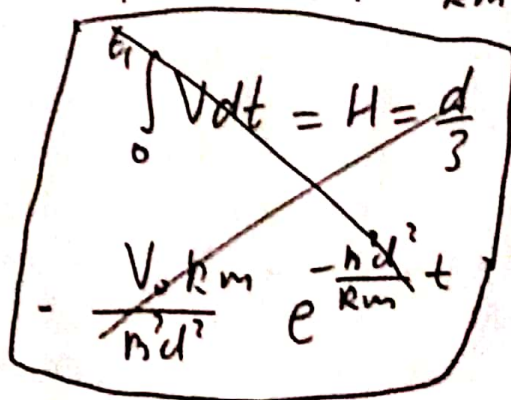 Rm
t₁
∫ V dt = H = d/3
0
- V₀Rm/B²d² e^(-B²d²/Rm t)